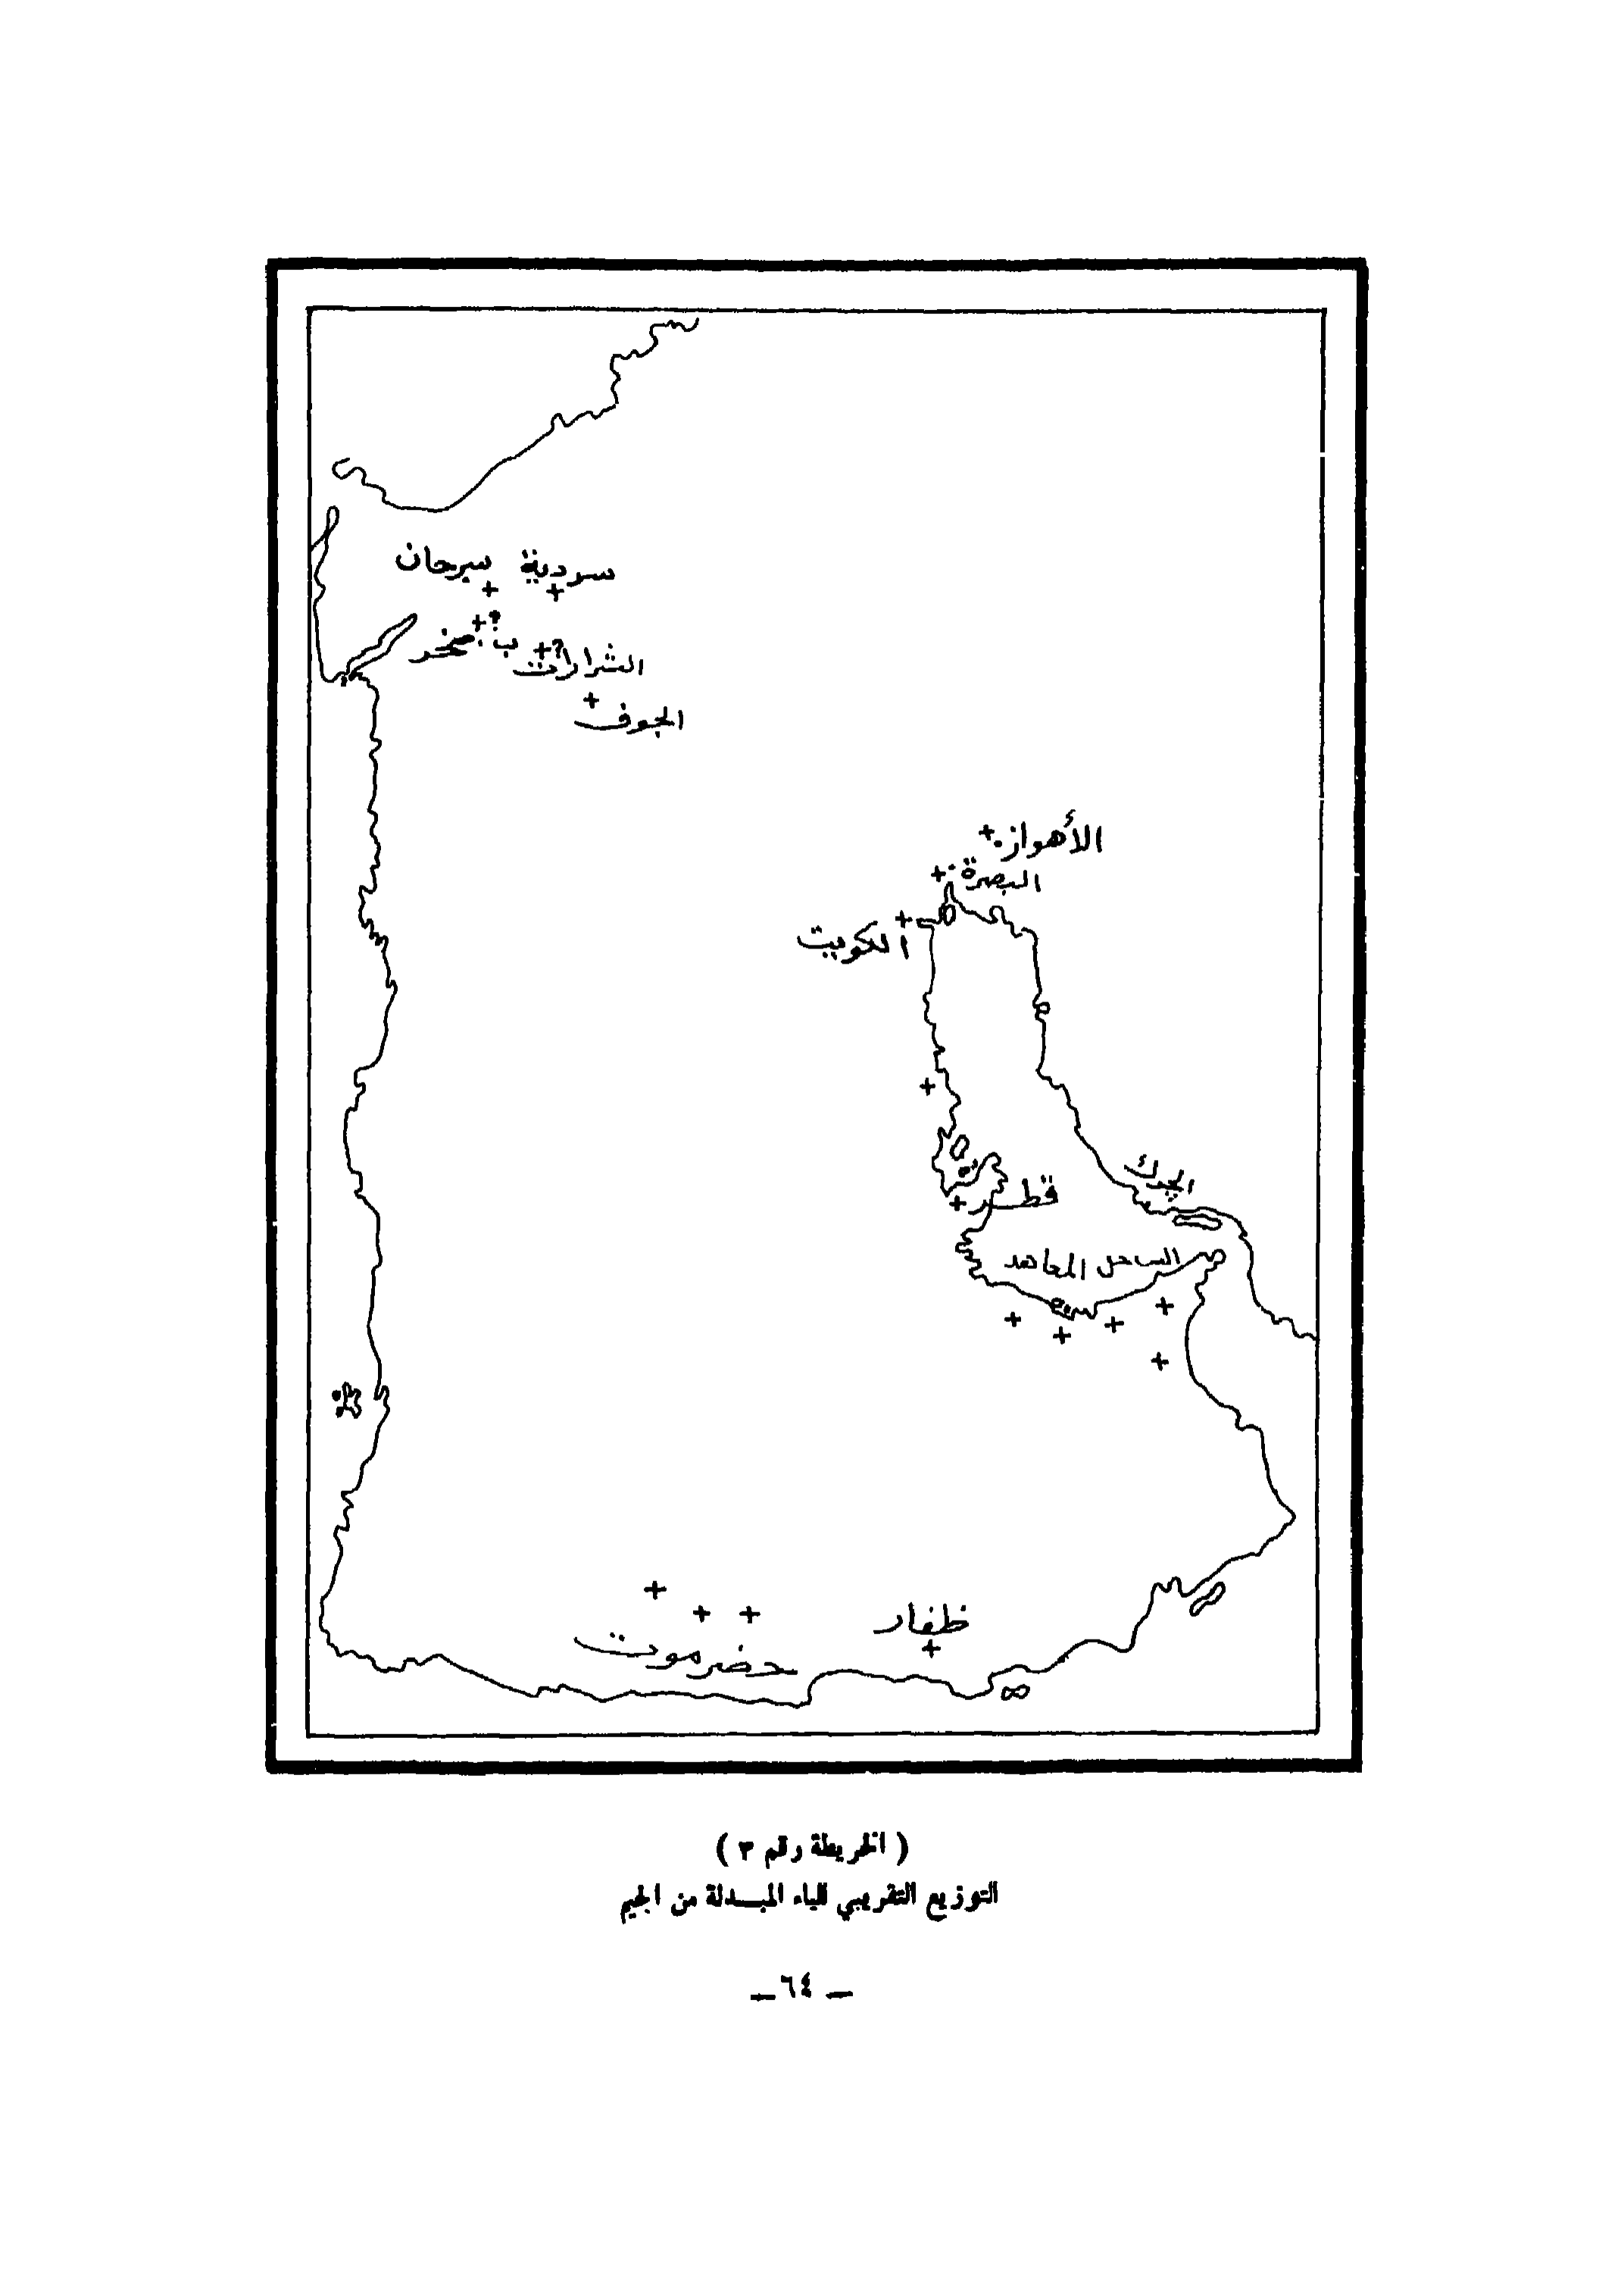 سردية سيرحان
+ +
+? ب. صخر
+? الشرارات
+
الجوف
الأهواز. +
البصرة. +
+
الكويت
+
قطر +
الساحل المعاهد
+ + + + +
+ + +
حضرموت
ظفار
+
( الخريطة رقم ٣ )
التوزيع التقريبي للياء المبدلة من الجيم
ـ ٦٤ ـ